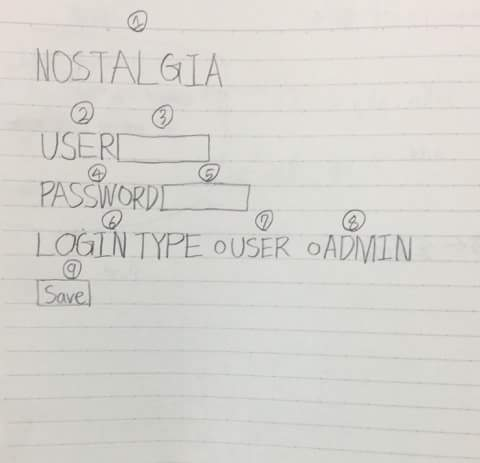 ①
NOSTALGIA
② ③
USER
④ ⑤
PASSWORD
⑥ ⑦ ⑧
LOGIN TYPE ○USER ○ADMIN
⑨
Save